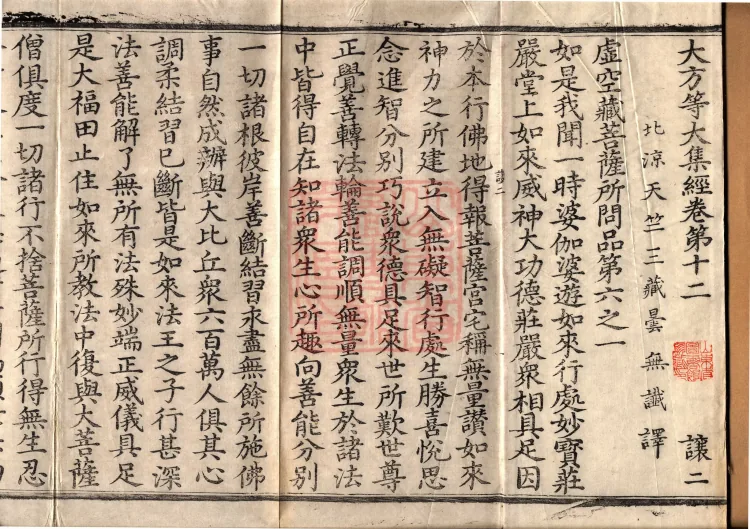 大方等大集經卷第十二 讓二
北涼天竺三藏曇無讖譯
虛空藏菩薩所問品第六之一
如是我聞一時婆伽婆遊如來行處妙寶莊
嚴堂上如來威神大功德莊嚴衆相具足因
於本行佛地得報菩薩宮宅稱無量讚如來
神力之所建立入無礙智行處生勝喜悅思
念進智分別巧說衆德具足來世所歎世尊
正覺善轉法輪善能調順無量衆生於諸法
中皆得自在知諸衆生心所趣向善能分別
一切諸根彼岸善斷結習永盡無餘所施佛
事自然成辦與大比丘衆六百萬人俱其心
調柔結習已斷皆是如來法王之子行甚深
法善能解了無所有法殊妙端正威儀具足
是大福田止住如來所教法中復與大菩薩
僧俱度一切諸行不捨菩薩所行得無生忍